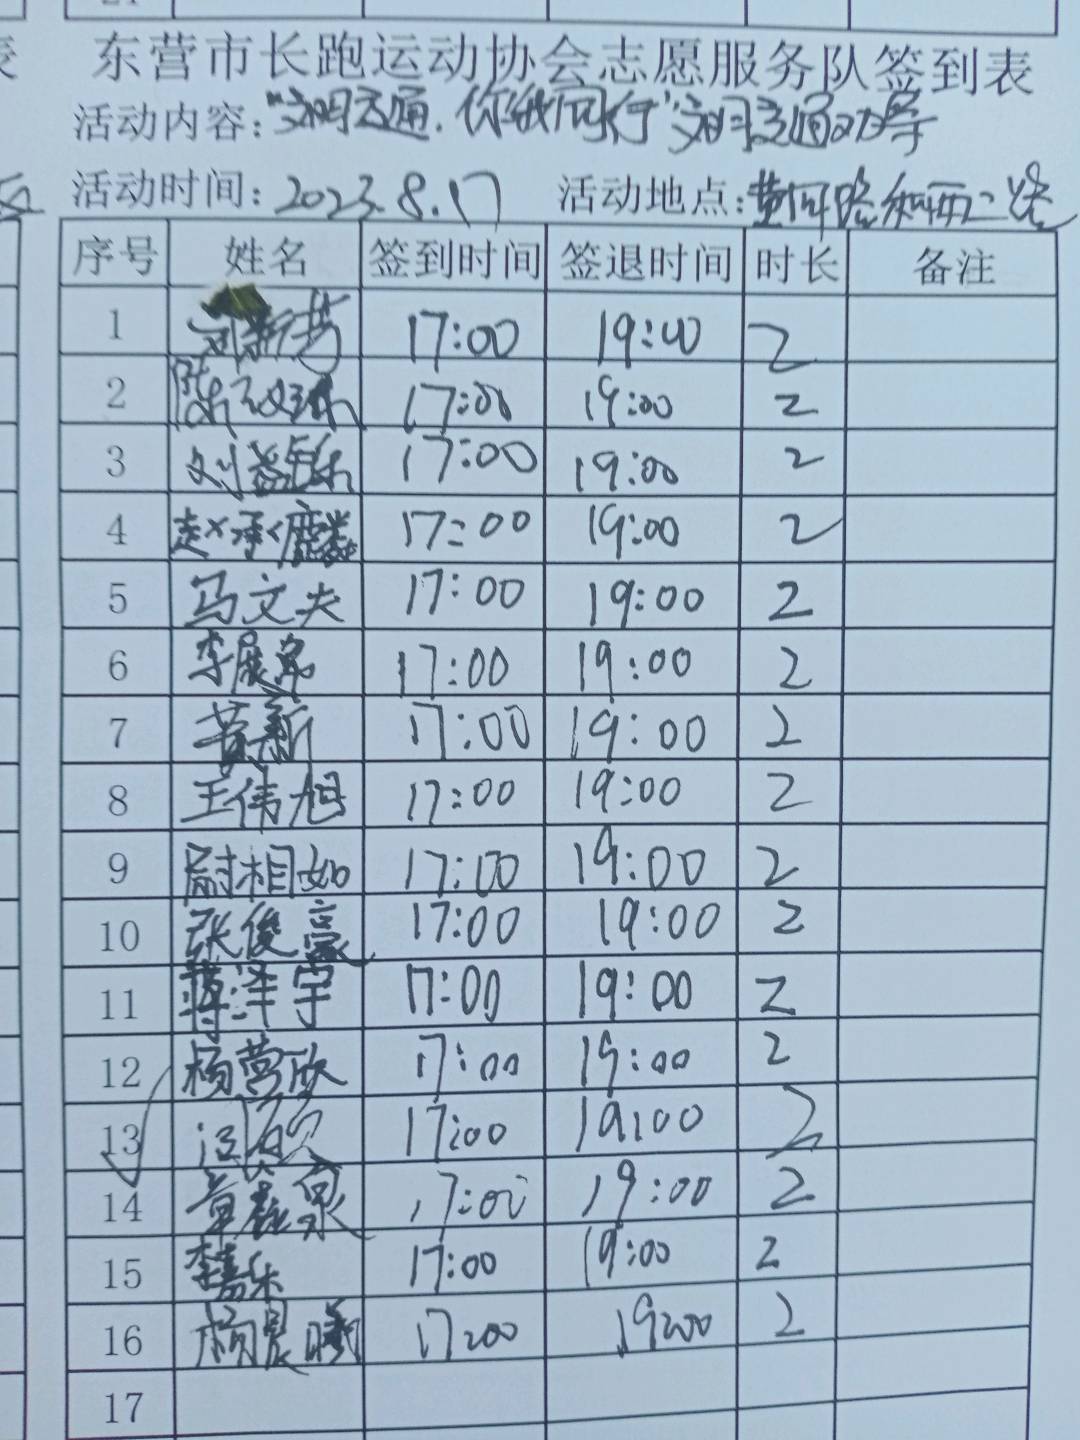 东营市长跑运动协会志愿服务队签到表
活动内容："文明交通，你我同行"文明交通劝导
活动时间：2023.8.17 活动地点：黄河路和西二路
序号 姓名 签到时间 签退时间 时长 备注
1 17:00 19:00 2
2 17:00 19:00 2
3 刘益乐 17:00 19:00 2
4 赵承麟 17:00 19:00 2
5 马文夫 17:00 19:00 2
6 李展 17:00 19:00 2
7 黄新 17:00 19:00 2
8 王伟旭 17:00 19:00 2
9 尉相如 17:00 19:00 2
10 张俊豪 17:00 19:00 2
11 蒋泽宇 17:00 19:00 2
12 杨营欣 17:00 19:00 2
13 17:00 19:00 2
14 17:00 19:00 2
15 李嘉乐 17:00 19:00 2
16 杨晨曦 17:00 19:00 2
17